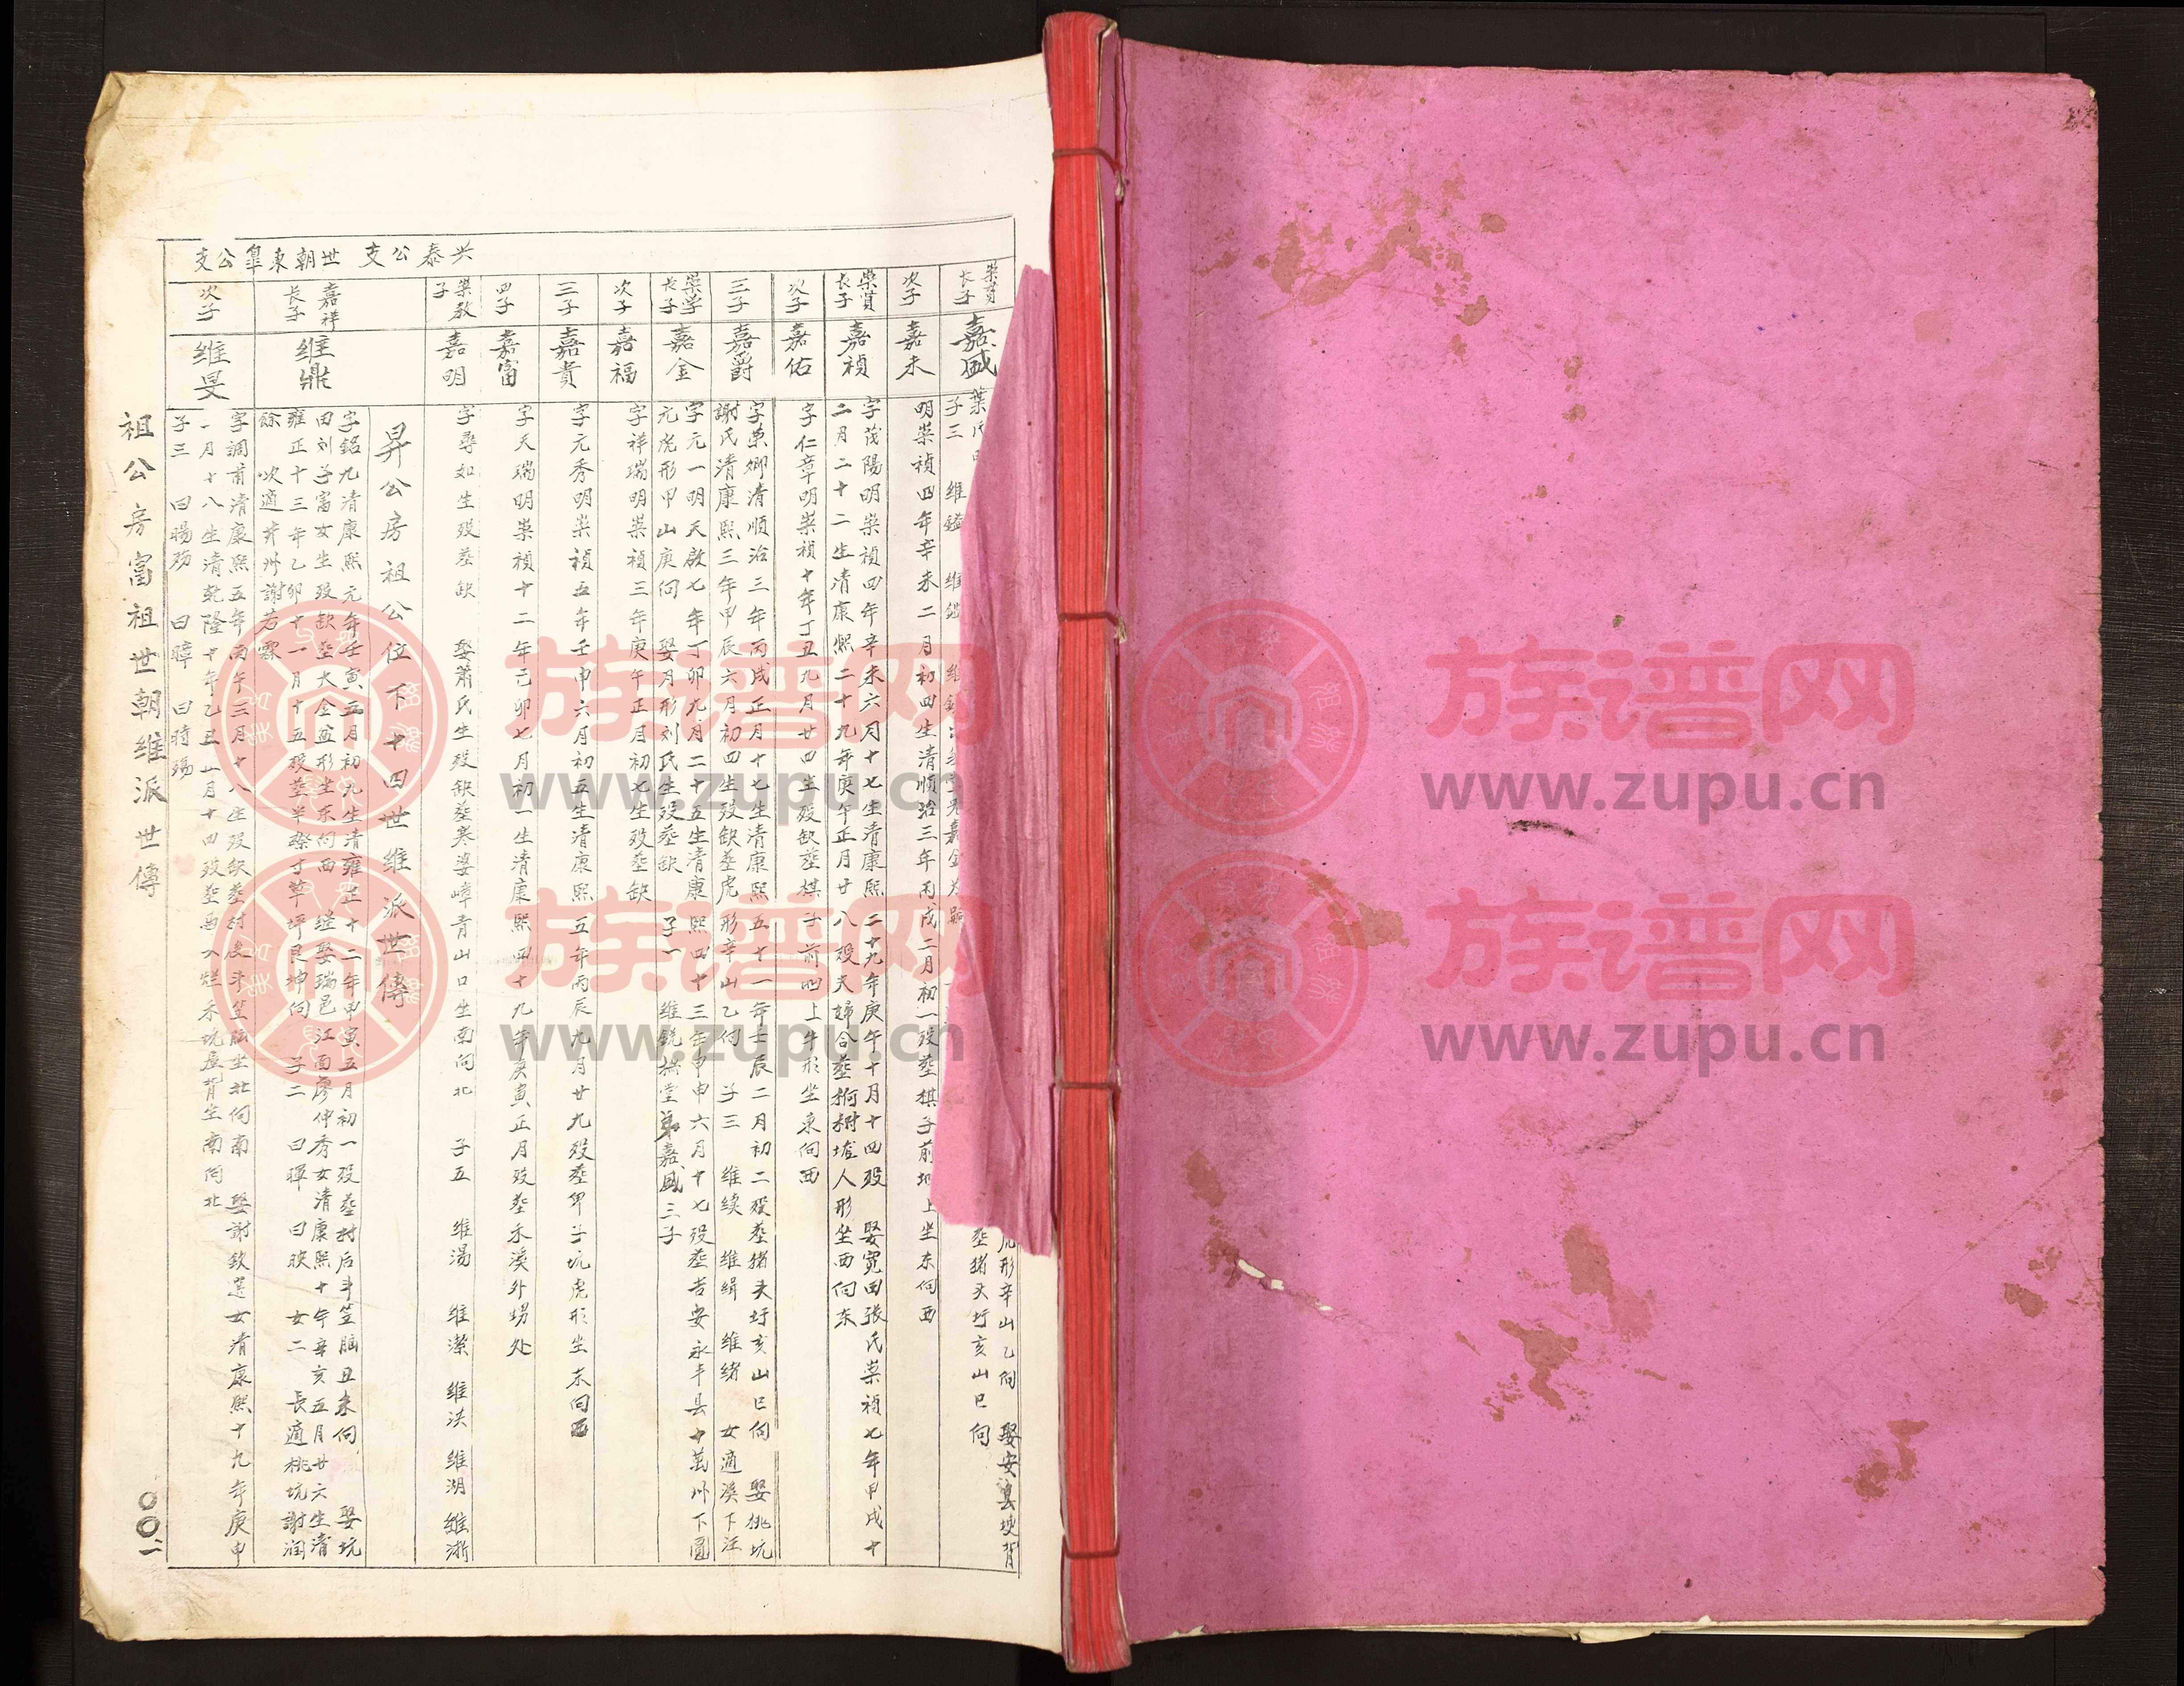 兴泰公支 世朝東阜公支
崇貢長子
嘉盛
子三 维鎰 维
娶安
虎形辛山乙向
塟猪头圩亥山巳向
次子
嘉未
明崇禎四年辛未二月初四生清順治三年丙戌二月初一殁塟棋子前坳上坐东向西
崇貢長子
嘉禎
字茂陽明崇禎四年辛未六月十七生清康熙二十九年庚午十月十四殁 娶寬田張氏崇禎七年甲戌十
二月二十二生清康熙二十九年庚午正月廿八殁夫婦合塟 人形坐西向东
次子
嘉佑
字仁章明崇禎十年丁丑九月廿四生殁缺塟棋子前坳上牛形坐東向西
三子
嘉爵
字荣卿清順治三年丙戌正月十七生清康熙五十一年壬辰二月初二殁塟猪头圩亥山巳向 娶桃坑
謝氏清康熙三年甲辰六月初四生殁缺塟虎形辛山乙向 子三 维续 维缉 维绪 女適溪下汪
崇学長子
嘉金
字元一明天啟七年丁卯九月二十五生清康熙四十三年甲申六月十七殁塟吉安永丰县十萬州下圆
元虎形甲山庚向 娶月形刘氏生殁塟缺 子一 维鋭桃堂弟嘉盛三子
次子
嘉福
字祥瑞明崇禎三年庚午正月初七生殁塟缺
三子
嘉貴
字元秀明崇禎五年壬申六月初五生清康熙五年丙辰九月廿九殁塟窂子坑虎形坐东向西
四子
嘉富
字天瑞明崇禎十二年己卯七月初一生清康熙四十九年庚寅正月殁塟禾溪外甥处
崇教子
嘉明
字尋如生殁塟缺 娶蕭氏生殁缺塟寒婆嶂青山口坐南向北 子五 维湯 维潔 维洪 维湖 维浙
昇公房祖公位下十四世维派世傳
嘉祥長子
维鼎
字銘九清康熙元年壬寅五月初九生清雍正十二年甲寅五月初一殁塟村后斗笠腦丑未向 娶坑
田刘子富女生殁缺塟大金盆形坐东向西 继娶瑞邑江面廖仲秀女清康熙十年辛亥五月廿六生清
雍正十三年乙卯十一月十五殁塟半嶺丁草坪艮坤向 子二 曰暉 曰暎 女二 長適桃坑謝润
餘 次適井州謝若霖
次子
维旻
字調甫清康熙五年丙午三月十八生殁缺塟村后斗笠腦坐北向南 娶謝欽選女清康熙十九年庚申
一月十八生清乾隆十年乙丑 月十四殁塟馬 烂禾坑屋背坐南向北
子三 曰暘殇 曰暲 曰時殇
祖公房富祖世朝维派世傳
〇〇一
族谱网
www.zupu.cn
族谱网
www.zupu.cn
族谱网
www.zupu.cn
族谱网
www.zupu.cn